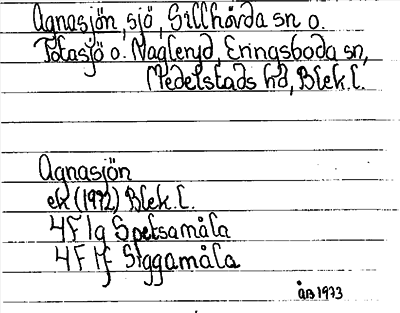 Agnasjön, sjö, Sillhövda sn o.
Totasjö o. Nagleryd, Eringsboda sn,
Medelstads hd, Blek. l.
Agnasjön
ek (1972) Blek. l.
4F 1g Spetsamåla
4F 1f Siggamåla
ÅB 1973